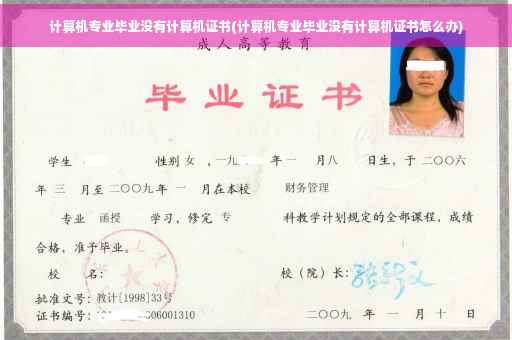 计算机专业毕业没有计算机证书(计算机专业毕业没有计算机证书怎么办)
成人高等教育
毕业证书
学生 性别 女 ,一九 年一 月八 日生,于二〇〇六
年 三 月至二〇〇九年 一 月在本校 财务管理
专业 函授 学习,修完 专 科教学计划规定的全部课程,成绩
合格,准予毕业。
校 名: 校(院)长:
批准文号:教计[1998]33号
证书编号: 06001310 二〇〇九 年 一 月 十 日